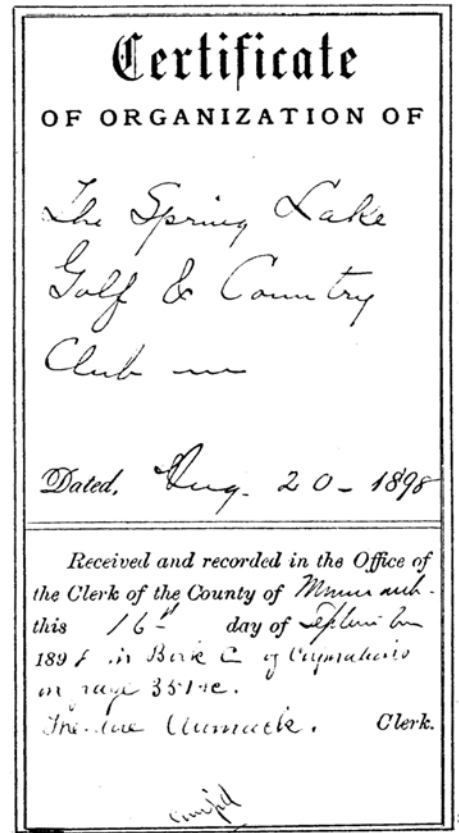 Certificate
OF ORGANIZATION OF
The Spring Lake
Golf & Country
Club
Dated, Aug. 20 - 1898
Received and recorded in the Office of
the Clerk of the County of Monmouth
this 16th day of September
1898 in Book C of Corporations
on page 351 &c.
Theodore Aumack. Clerk.